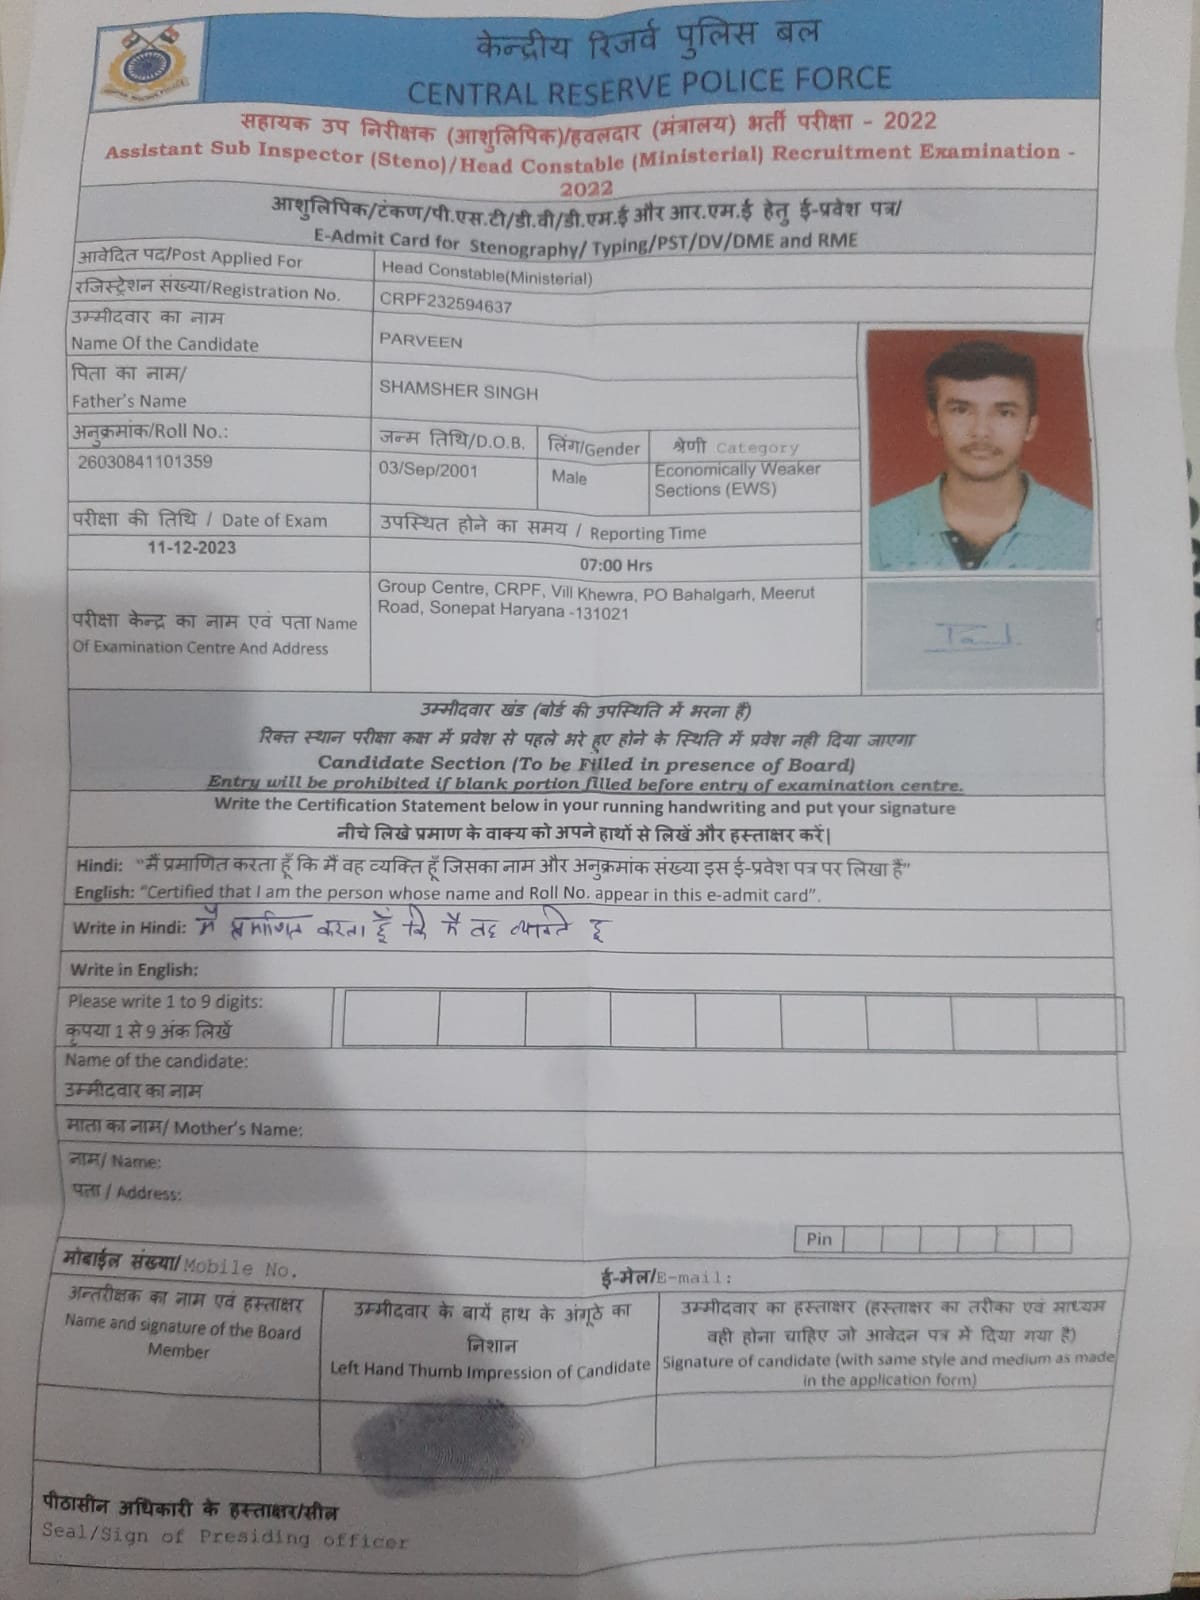 केन्द्रीय रिजर्व पुलिस बल
CENTRAL RESERVE POLICE FORCE
सहायक उप निरीक्षक (आशुलिपिक)/हवलदार (मंत्रालय) भर्ती परीक्षा - 2022
Assistant Sub Inspector (Steno)/Head Constable (Ministerial) Recruitment Examination -
2022
आशुलिपिक/टंकण/पी.एस.टी/डी.वी/डी.एम.ई और आर.एम.ई हेतु ई-प्रवेश पत्र/
E-Admit Card for Stenography/ Typing/PST/DV/DME and RME
आवेदित पद/Post Applied For
Head Constable(Ministerial)
रजिस्ट्रेशन संख्या/Registration No.
CRPF232594637
उम्मीदवार का नाम
Name Of the Candidate
PARVEEN
पिता का नाम/
Father's Name
SHAMSHER SINGH
अनुक्रमांक/Roll No.:
जन्म तिथि/D.O.B.
लिंग/Gender
श्रेणी Category
26030841101359
03/Sep/2001
Male
Economically Weaker
Sections (EWS)
परीक्षा की तिथि / Date of Exam
उपस्थित होने का समय / Reporting Time
11-12-2023
07:00 Hrs
परीक्षा केन्द्र का नाम एवं पता Name
Of Examination Centre And Address
Group Centre, CRPF, Vill Khewra, PO Bahalgarh, Meerut
Road, Sonepat Haryana -131021
उम्मीदवार खंड (बोर्ड की उपस्थिति में भरना है)
रिक्त स्थान परीक्षा कक्ष में प्रवेश से पहले भरे हुए होने के स्थिति में प्रवेश नही दिया जाएगा
Candidate Section (To be Filled in presence of Board)
Entry will be prohibited if blank portion filled before entry of examination centre.
Write the Certification Statement below in your running handwriting and put your signature
नीचे लिखे प्रमाण के वाक्य को अपने हाथों से लिखें और हस्ताक्षर करें|
Hindi: "मैं प्रमाणित करता हूँ कि मैं वह व्यक्ति हूँ जिसका नाम और अनुक्रमांक संख्या इस ई-प्रवेश पत्र पर लिखा है"
English: "Certified that I am the person whose name and Roll No. appear in this e-admit card".
Write in Hindi: मैं प्रमाणित करता हूँ कि मैं वह व्यक्ति हू
Write in English:
Please write 1 to 9 digits:
कृपया 1 से 9 अंक लिखें
Name of the candidate:
उम्मीदवार का नाम
माता का नाम/ Mother's Name:
नाम/ Name:
पता / Address:
Pin
मोबाईल संख्या/Mobile No.
ई-मेल/E-mail:
अन्तरीक्षक का नाम एवं हस्ताक्षर
Name and signature of the Board
Member
उम्मीदवार के बायें हाथ के अंगूठे का
निशान
Left Hand Thumb Impression of Candidate
उम्मीदवार का हस्ताक्षर (हस्ताक्षर का तरीका एवं माध्यम
वही होना चाहिए जो आवेदन पत्र में दिया गया है)
Signature of candidate (with same style and medium as made
in the application form)
पीठासीन अधिकारी के हस्ताक्षर/सील
Seal/Sign of Presiding officer